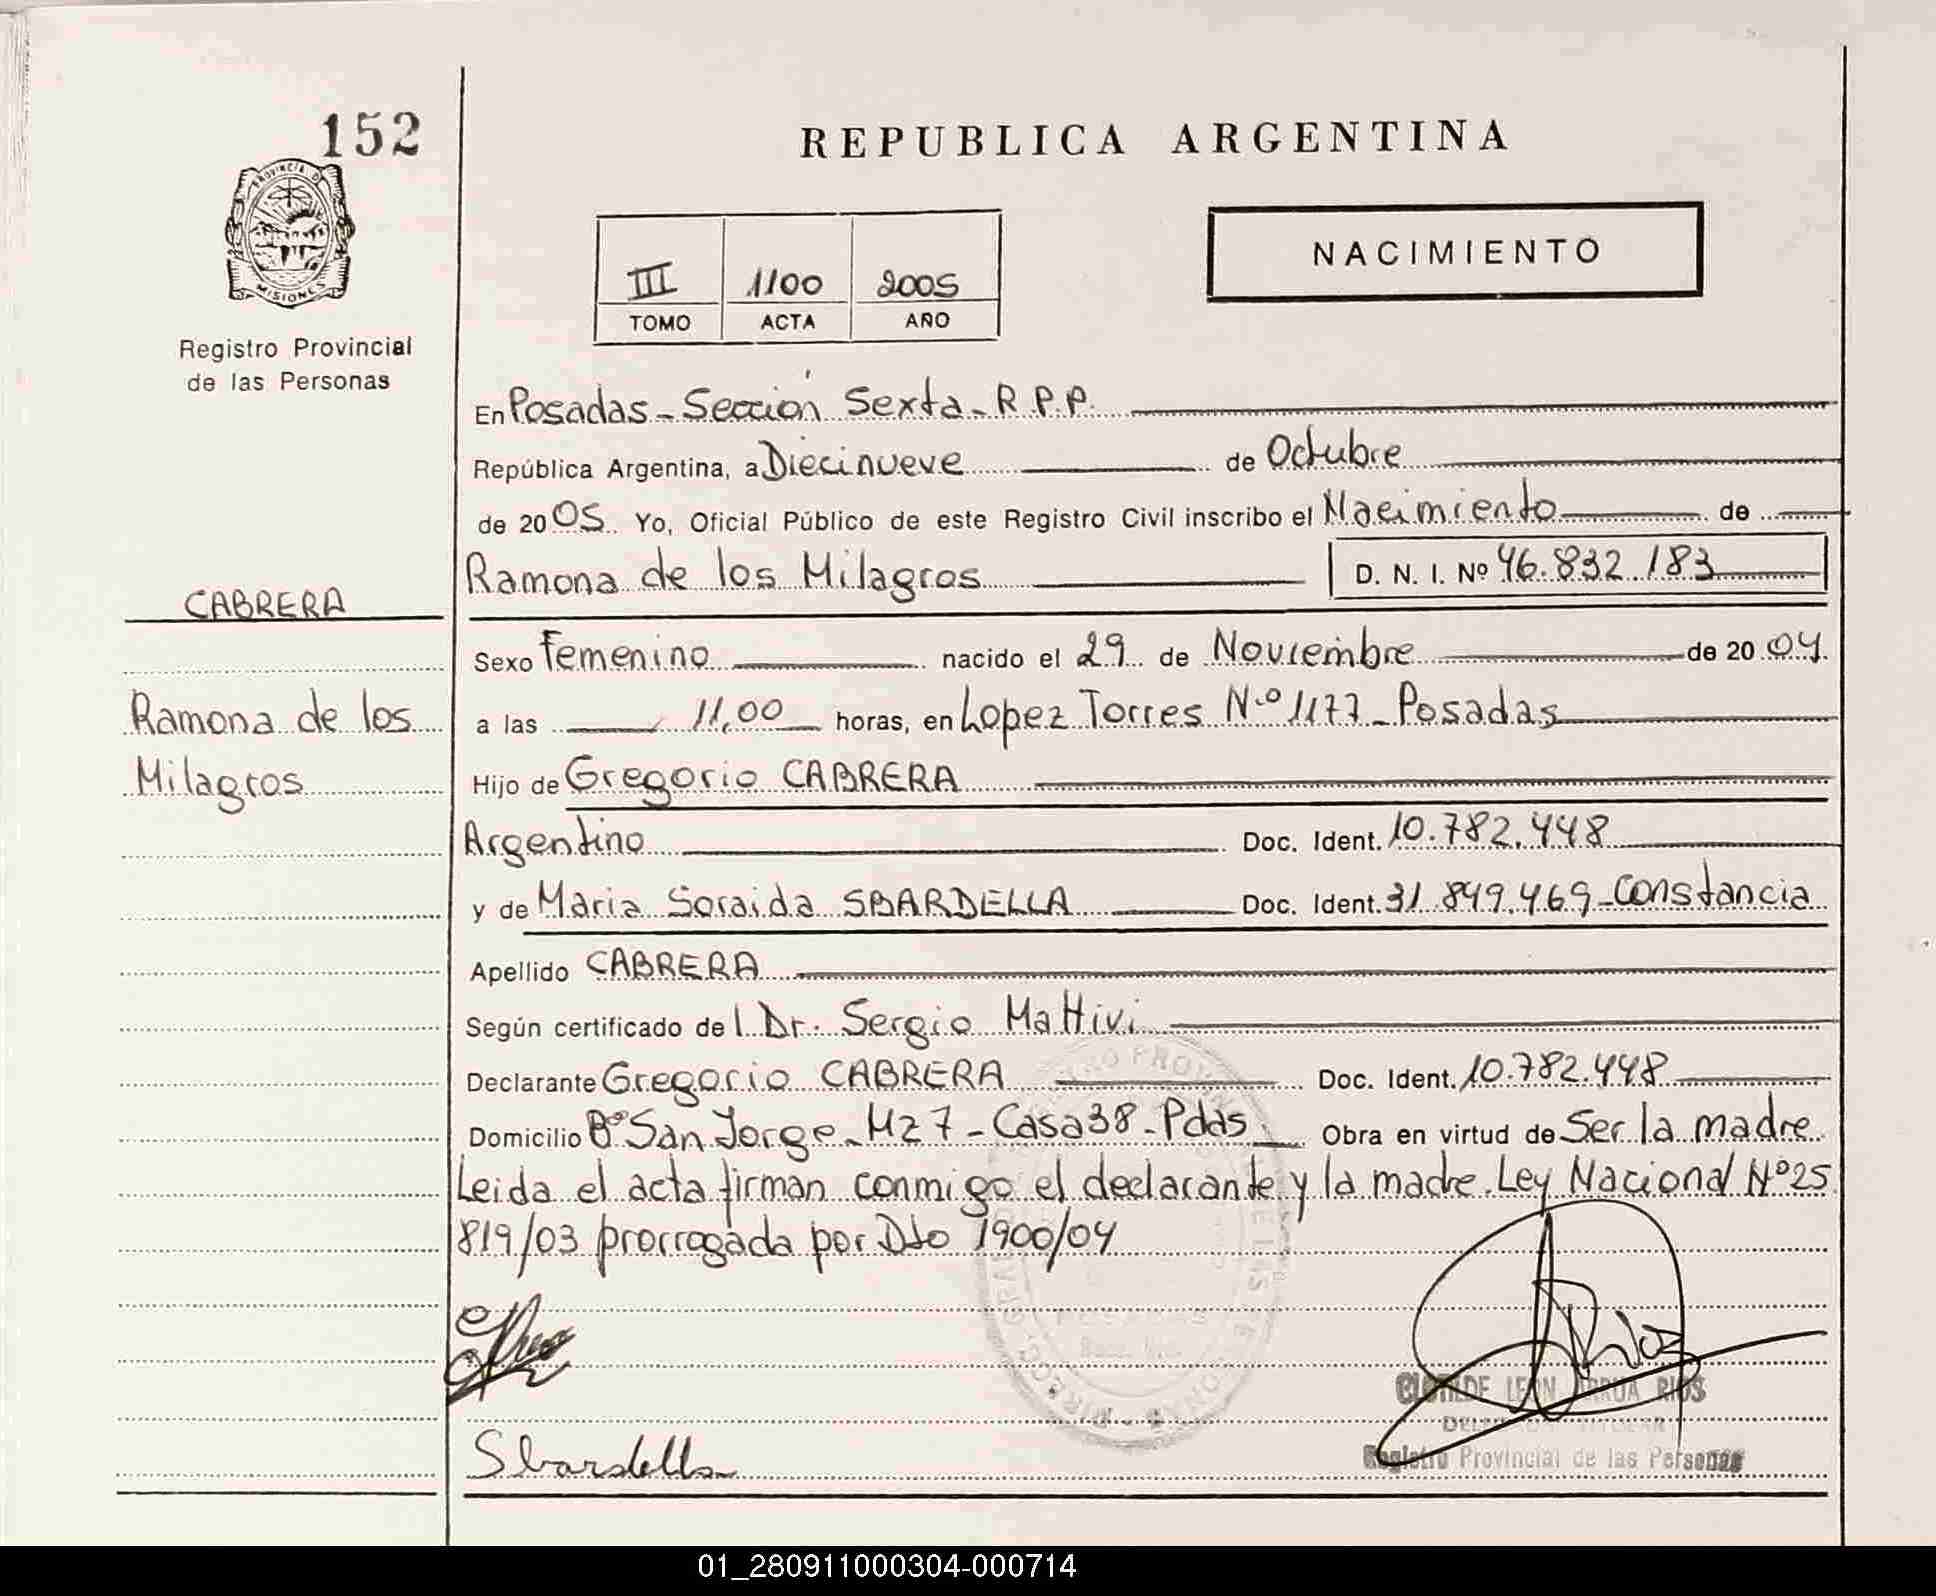 152
PROVINCIA D
MISIONES
Registro Provincial
de las Personas
CABRERA
Ramona de los
Milagros
REPUBLICA ARGENTINA
III 1100 2005
TOMO ACTA AÑO
NACIMIENTO
En Posadas - Sección Sexta - R.P.P.
República Argentina, a Diecinueve de Octubre
de 2005 Yo, Oficial Público de este Registro Civil inscribo el Nacimiento de
Ramona de los Milagros D. N. I. Nº 46.832.183
Sexo Femenino nacido el 29 de Noviembre de 2004.
a las 11,00 horas, en Lopez Torres Nº 1177 - Posadas
Hijo de Gregorio CABRERA
Argentino Doc. Ident. 10.782.448
y de Maria Soraida SBARDELLA Doc. Ident. 31.849.469 - Constancia
Apellido CABRERA
Según certificado del Dr. Sergio Mattivi
Declarante Gregorio CABRERA Doc. Ident. 10.782.448
Domicilio Bº San Jorge - Mz 7 - Casa 38 - Pdas. Obra en virtud de Ser la madre
Leida el acta firman conmigo el declarante y la madre. Ley Nacional Nº 25
819/03 prorrogada por Dto 1900/04
Sbardella
Rios
CLOTILDE LEON ARRUA RIOS
Registro Provincial de las Personas
01_280911000304-000714